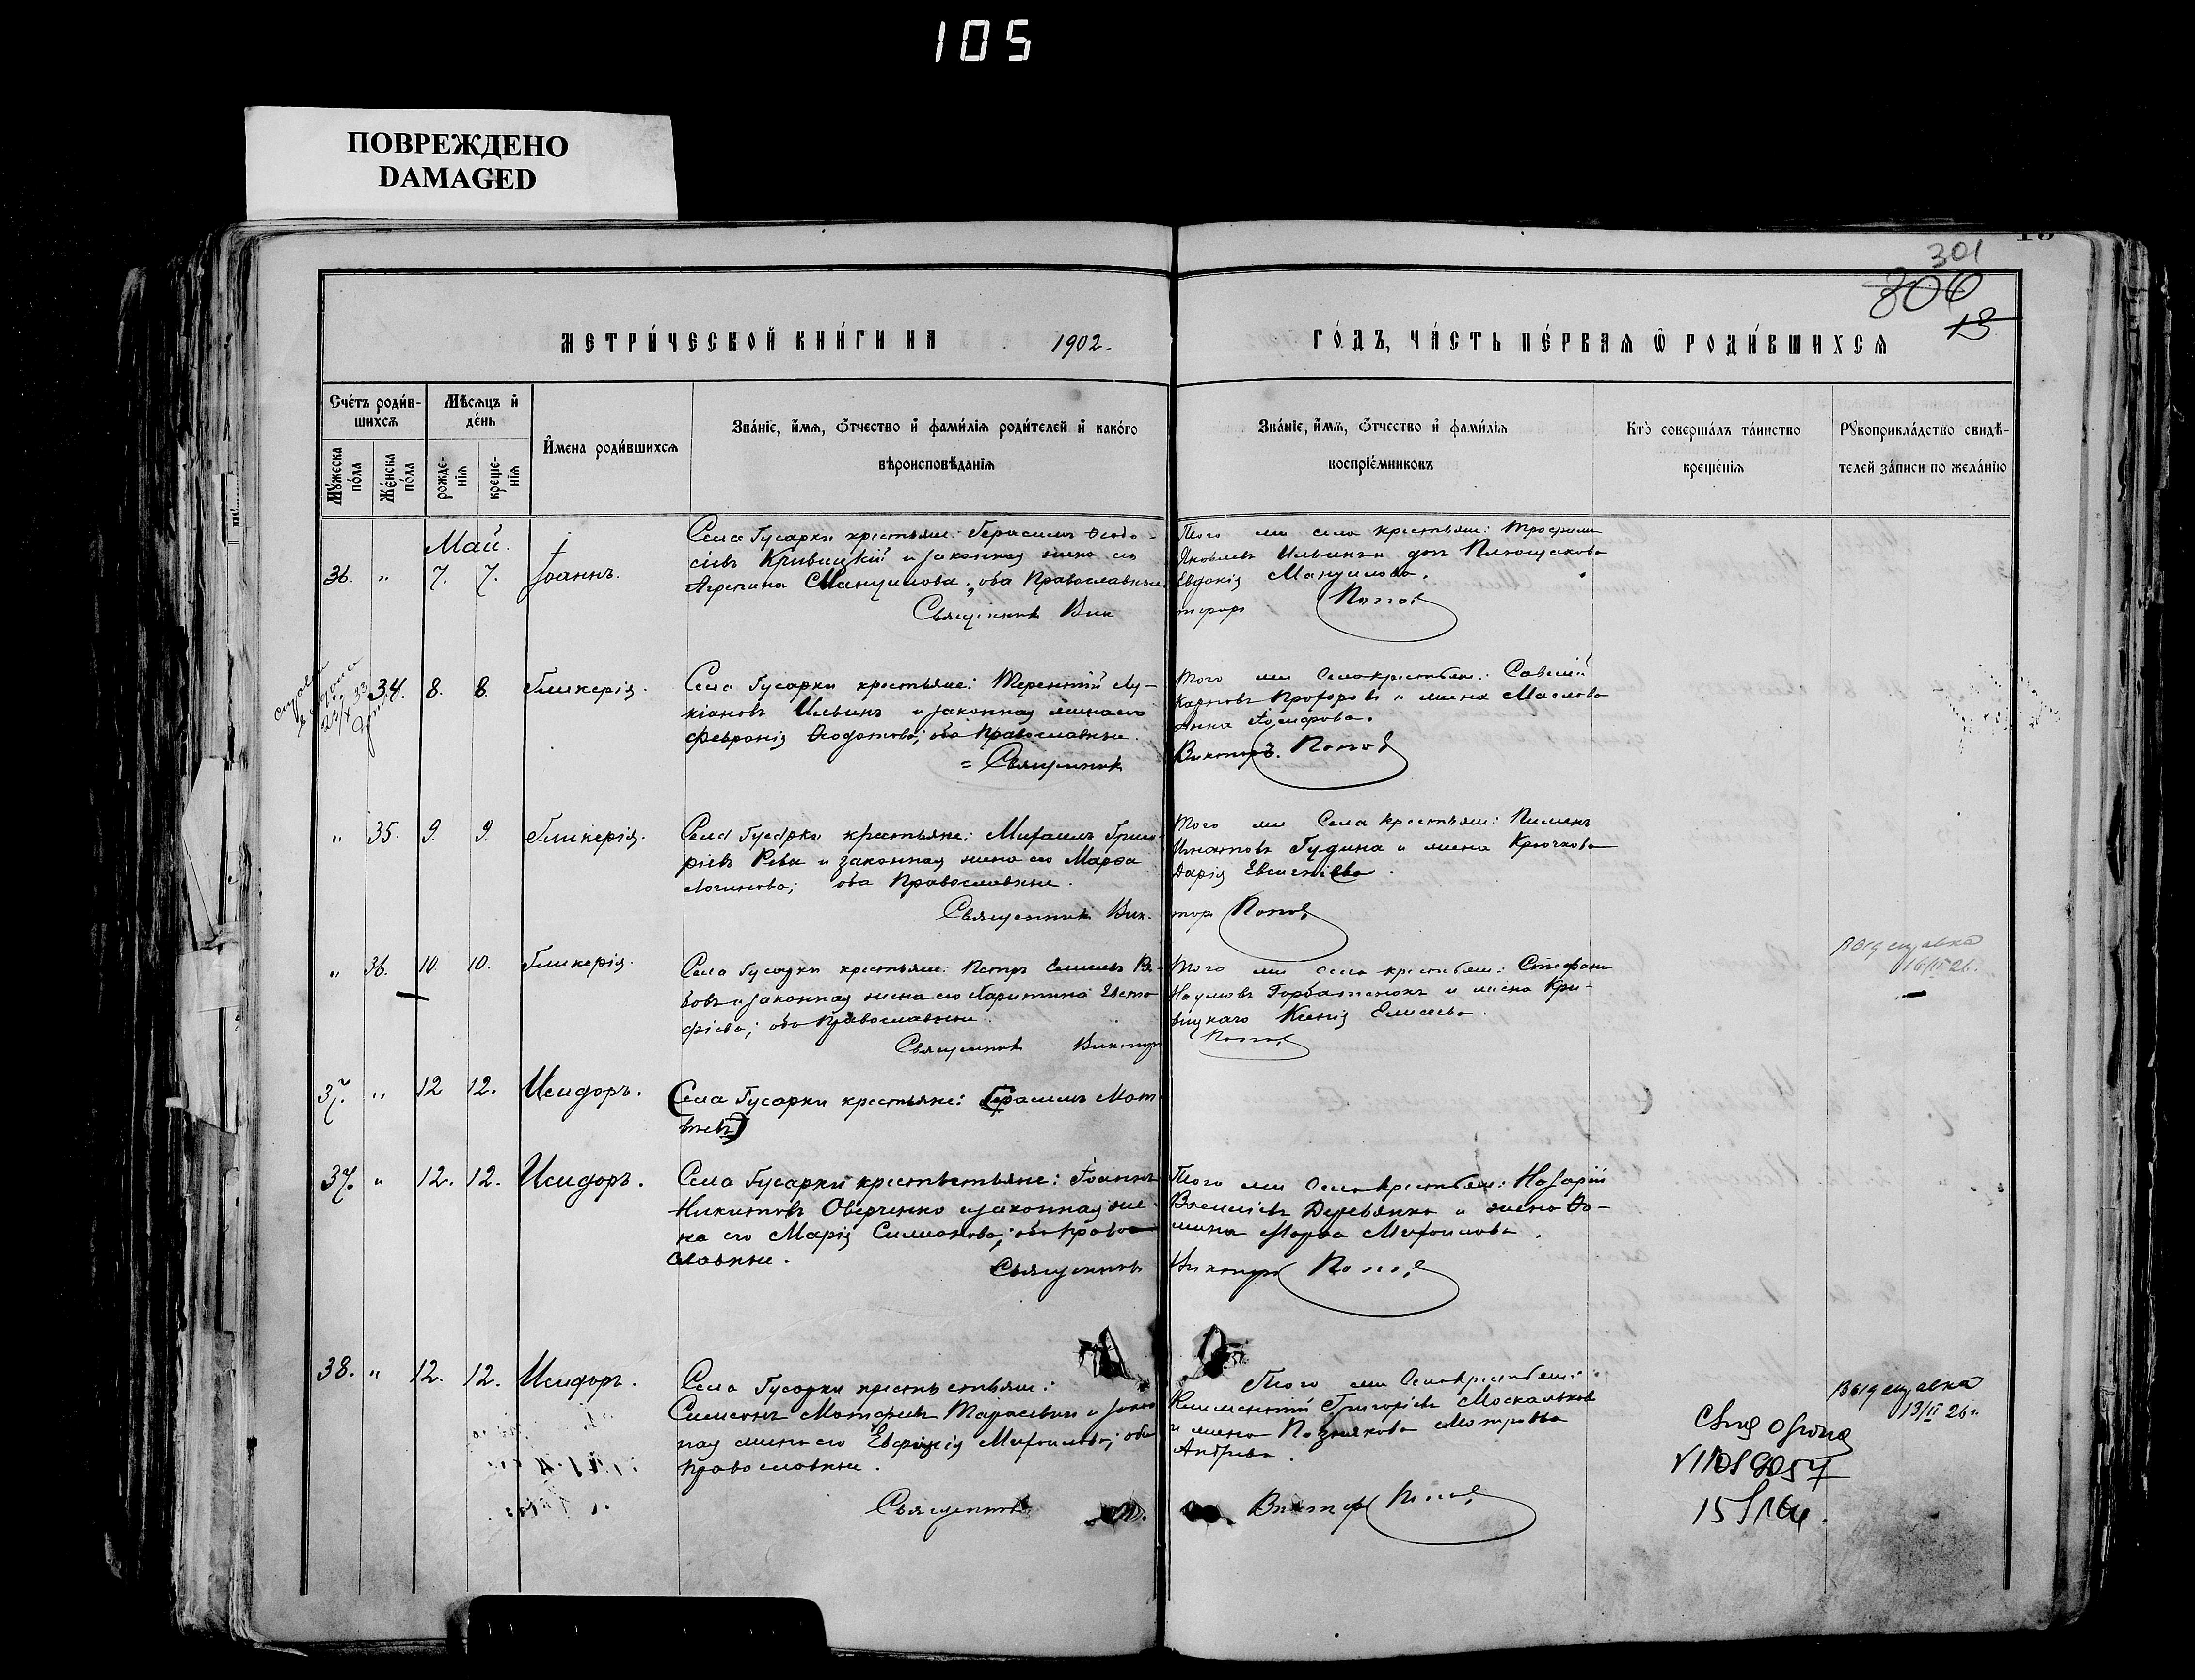 105
ПОВРЕЖДЕНО
DAMAGED
301
306
13
МЕТРИ́ЧЕСКОЙ КНИ́ГИ НА 1902. ГО́ДЪ, ЧА́СТЬ ПЕ́РВАЯ Ѿ РОДИ́ВШИХСѦ
Сче́тъ роди́в-
шихсѧ
Мѣ́сѧцъ и҆
де́нь
Му́жеска
по́ла
Же́нска
по́ла
рожде-
нїѧ
креще-
нїѧ
И҆мена роди́вшихсѧ
Зва́нїе, и҆́мѧ, ѻ҆́тчество и҆ фами́лїѧ роди́телей и҆ како́гѡ
вѣроисповѣ́данїѧ
Зва́нїе, и҆́мѧ, ѻ҆́тчество и҆ фами́лїѧ
воспрїе́мниковъ
Кто̀ соверша́лъ та́инство
креще́нїѧ
Рꙋкоприкла́дство свидѣ́-
телей за́писи по жела́нїю
Май.
36. " 7. 7. Іоаннъ.
Села Гусарки крестьяне: Герасимъ Ѳеодо-
сіевъ Кривицкій и законная жена его
Агрепина Мануилова; оба Православные.
Священникъ Вик
Того же села крестьяне: Трофимъ
Яковлевъ Ильинъ и
Евдокія Мануилова.
торъ Поповъ
34. 8. 8. Гликерія.
Села Гусарки крестьяне: Терентій Лу-
кіановъ Ильинъ и законная жена его
Февронія Ѳеодотова; оба Православные.
= Священникъ
Того же села крестьяне: Савелій
Карповъ Прохоровъ и жена Маслова
Анна
Викторъ. Поповъ
" 35. 9. 9. Гликерія.
Села Гусарки крестьяне: Михаилъ Григо-
ріевъ Рева и законная жена его Марѳа
Логинова; оба Православные.
Священникъ Вик-
Того же села крестьяне: Пименъ
Игнатовъ Гудина и жена Крючкова
Дарія Евсигніева.
торъ Поповъ
" 36. 10. 10. Гликерія.
Села Гусарки крестьяне: Петръ
и законная жена его Харитина Евста-
фіева; оба Православные.
Священникъ Викторъ
Того же села крестьяне: Стефанъ
Наумовъ Горбатенокъ и жена Кри-
вицкаго Ксенія Елисеева.
Поповъ
Выд справка
16/II 26.
37. " 12 12. Исидоръ.
(Села Гусарки крестьяне: Герасимъ Мат
вѣевъ)
37. " 12. 12. Исидоръ.
Села Гусарки крестьстьяне: Іоаннъ
Никитовъ Оверченко и законная же-
на его Марія Симионова; оба Право-
славные.
Священникъ
Того же села крестьяне: Назарій
Василіевъ Деревянко и жена Ѳо-
мина Марѳа Михаилова.
Викторъ Поповъ
38. " 12. 12. Исидоръ.
Села Гусарки крестьстьяне:
Симеонъ Матѳеевъ Тарасевичъ и закон
ная жена его Евфимія Михаилова; оба
православные.
Священникъ
Того же села крестьяне:
Климентій Григоріевъ Москальковъ
и жена Познякова Матрона
Андреева.
Викторъ Поповъ
Выд справка
13/II 26г.